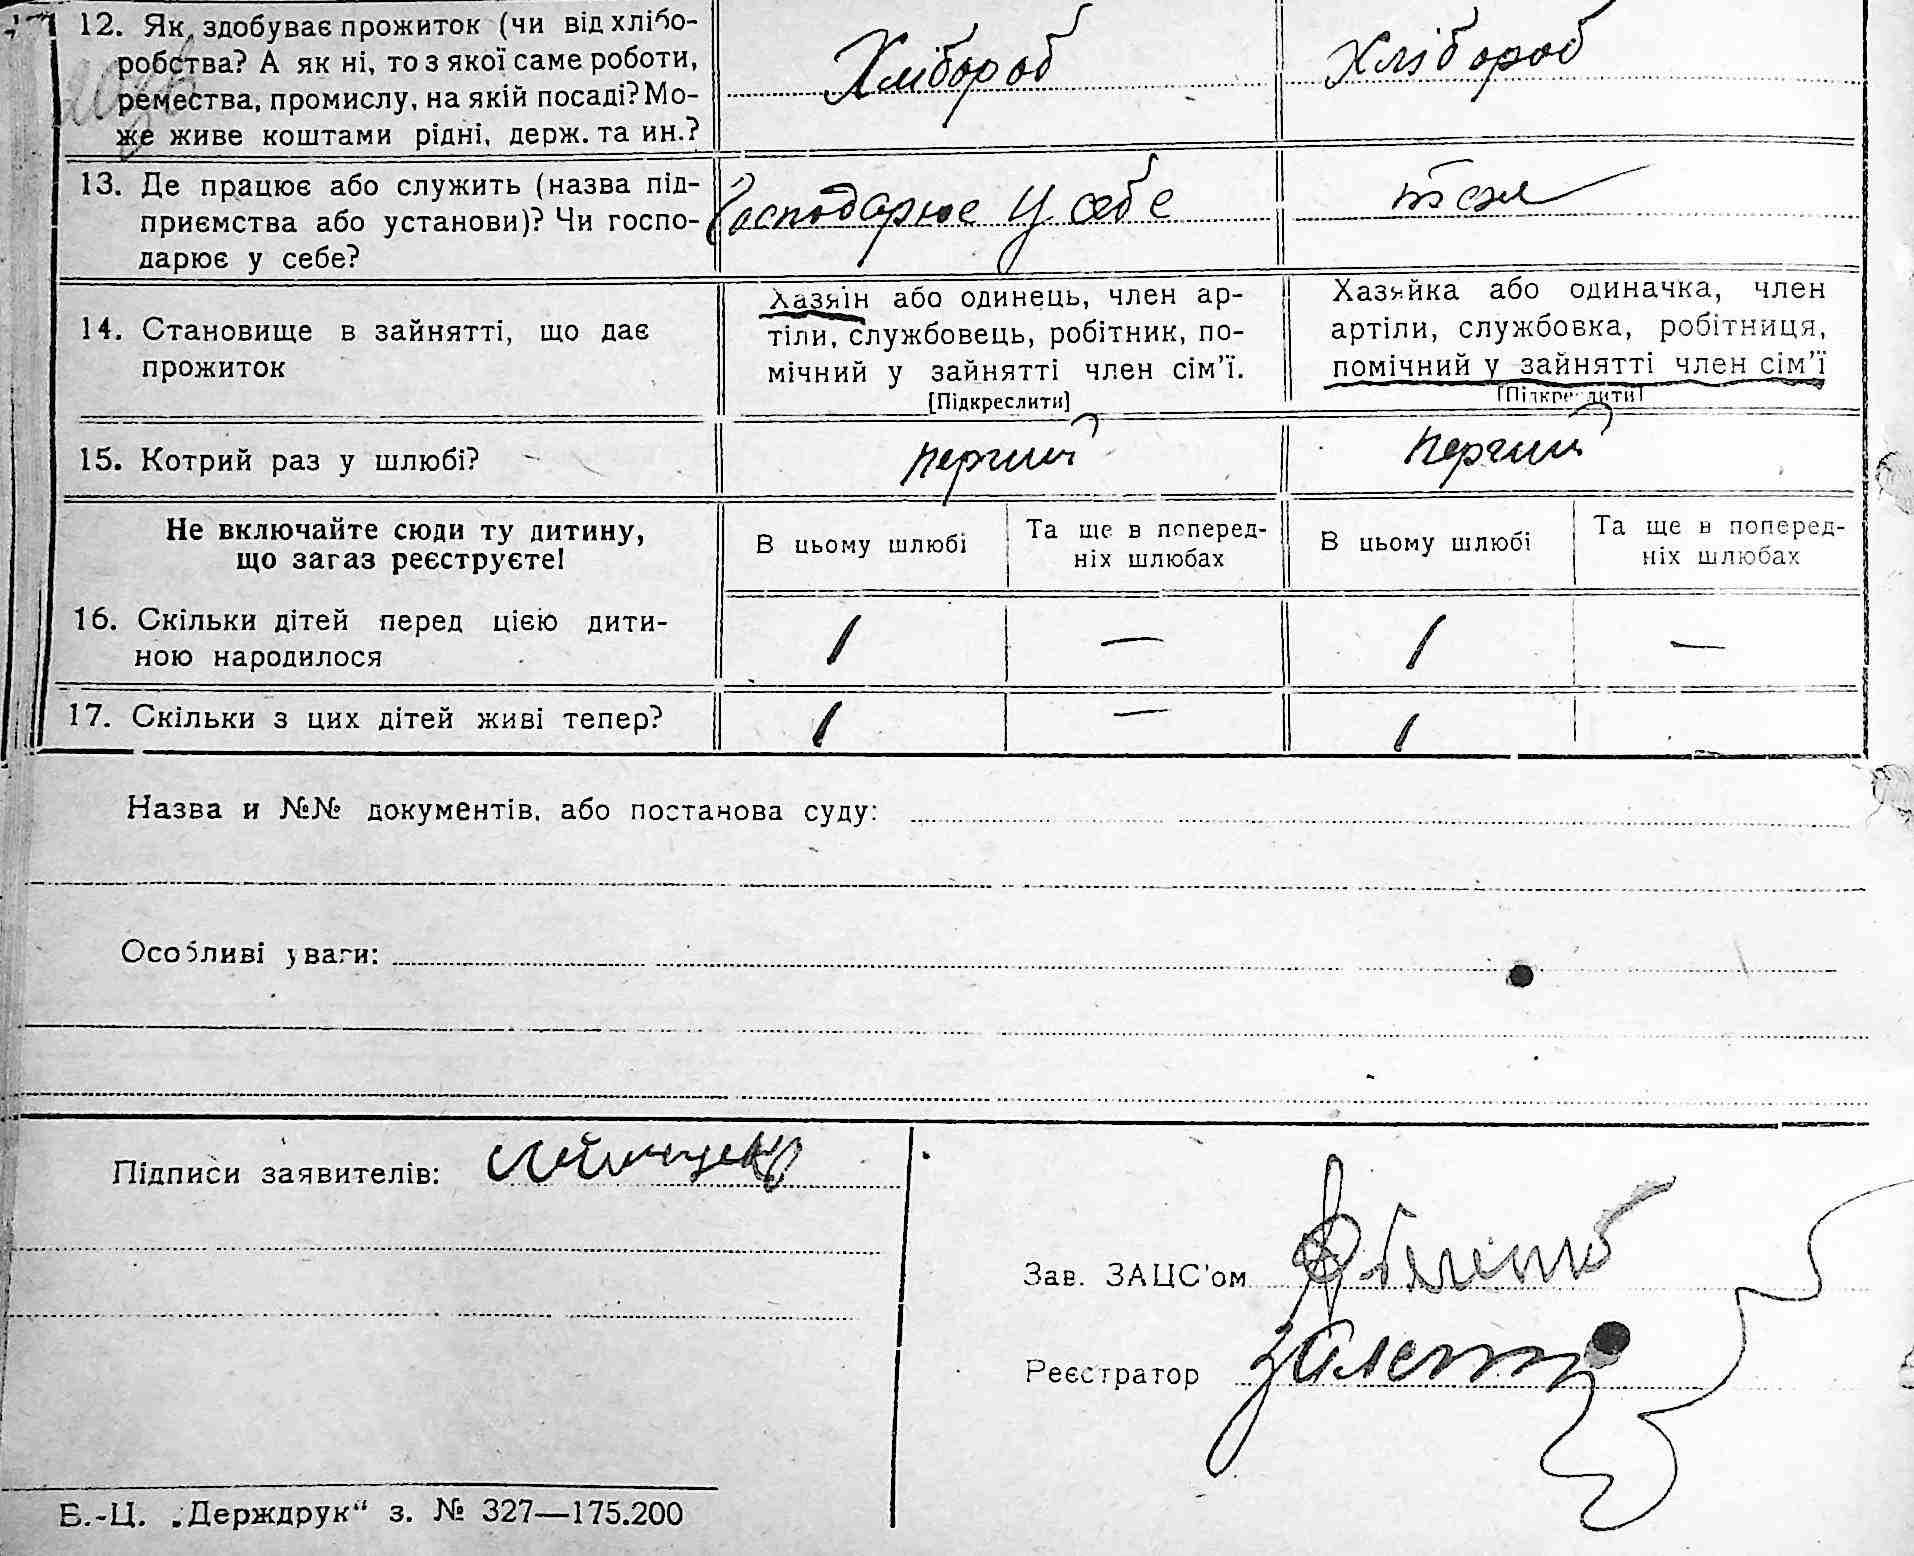 12. Як здобуває прожиток (чи від хлібо-
робства? А як ні, то з якої саме роботи,
ремества, промислу, на якій посаді? Мо-
же живе коштами рідні, держ. та ин.?
Хлібороб
Хлібороб
13. Де працює або служить (назва під-
приємства або установи)? Чи госпо-
дарює у себе?
Господарює у себе
14. Становище в зайнятті, що дає
прожиток
Хазяін або одинець, член ар-
тіли, службовець, робітник, по-
мічний у зайнятті член сім’ї.
[Підкреслити]
Хазяйка або одиначка, член
артіли, службовка, робітниця,
помічний у зайнятті член сім’ї
[Підкреслити]
15. Котрий раз у шлюбі?
перший
перший
Не включайте сюди ту дитину,
що загаз реєструєте!
В цьому шлюбі
Та ще в поперед-
ніх шлюбах
В цьому шлюбі
Та ще в поперед-
ніх шлюбах
16. Скільки дітей перед цією дити-
ною народилося
1 — 1 —
17. Скільки з цих дітей живі тепер?
1 — 1 -
Назва и №№ документів, або постанова суду:
Особливі уваги:
Підписи заявителів:
Зав. ЗАЦС'ом
Реєстратор
Б.-Ц. „Держдрук“ з. № 327—175.200